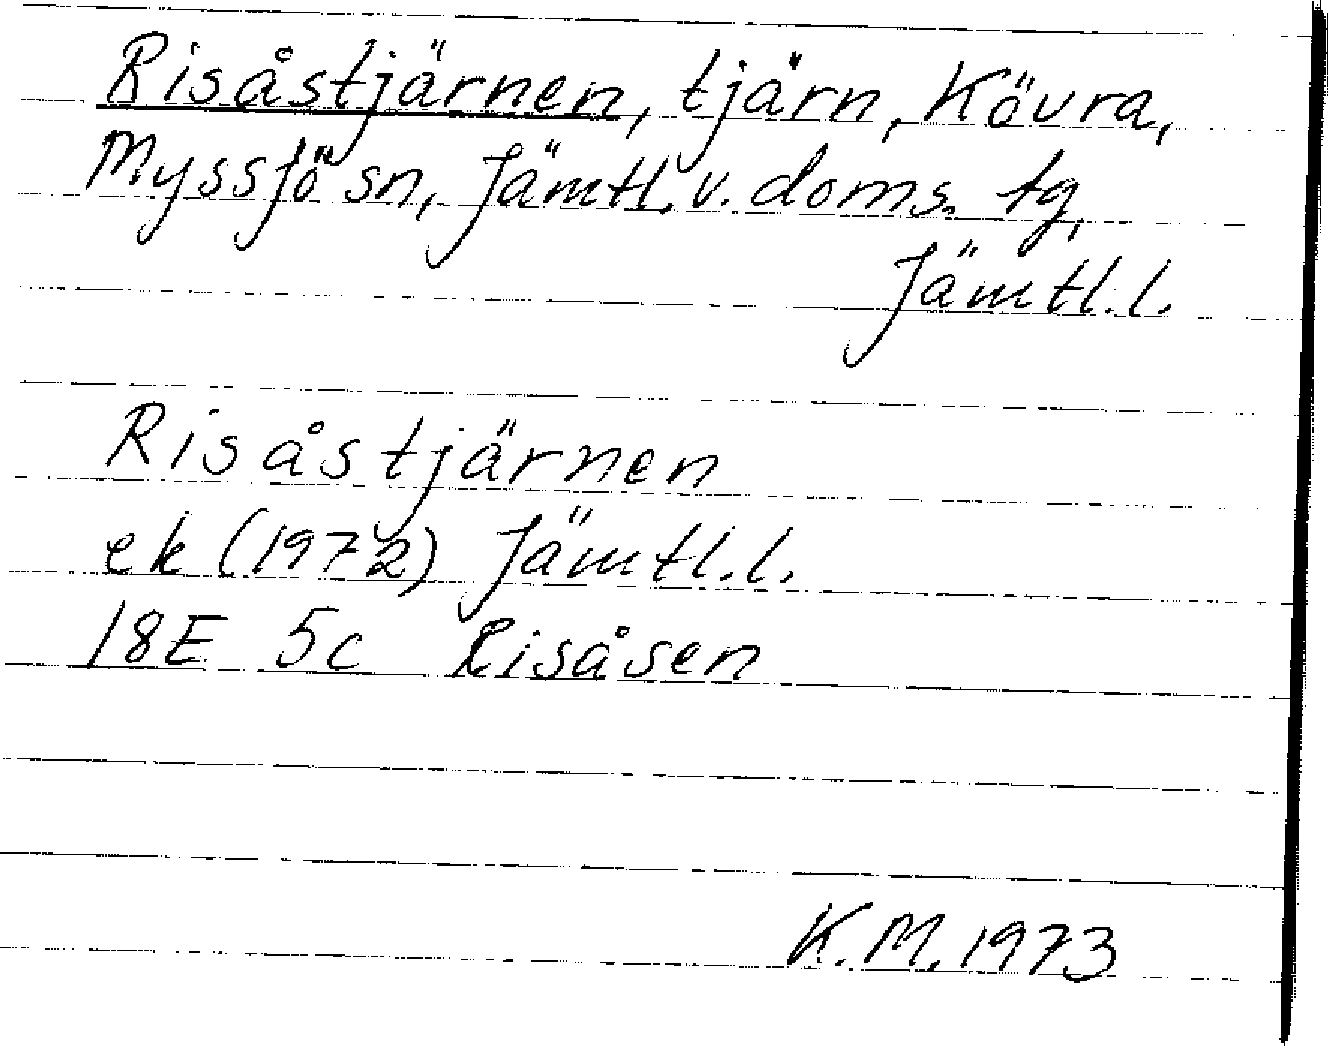 Risåstjärnen, tjärn, Kövra,
Myssjö sn, Jämtl. v. doms. tg,
Jämtl. l.
Risåstjärnen
ek (1972) Jämtl. l.
18E 5c Risåsen
K. M. 1973